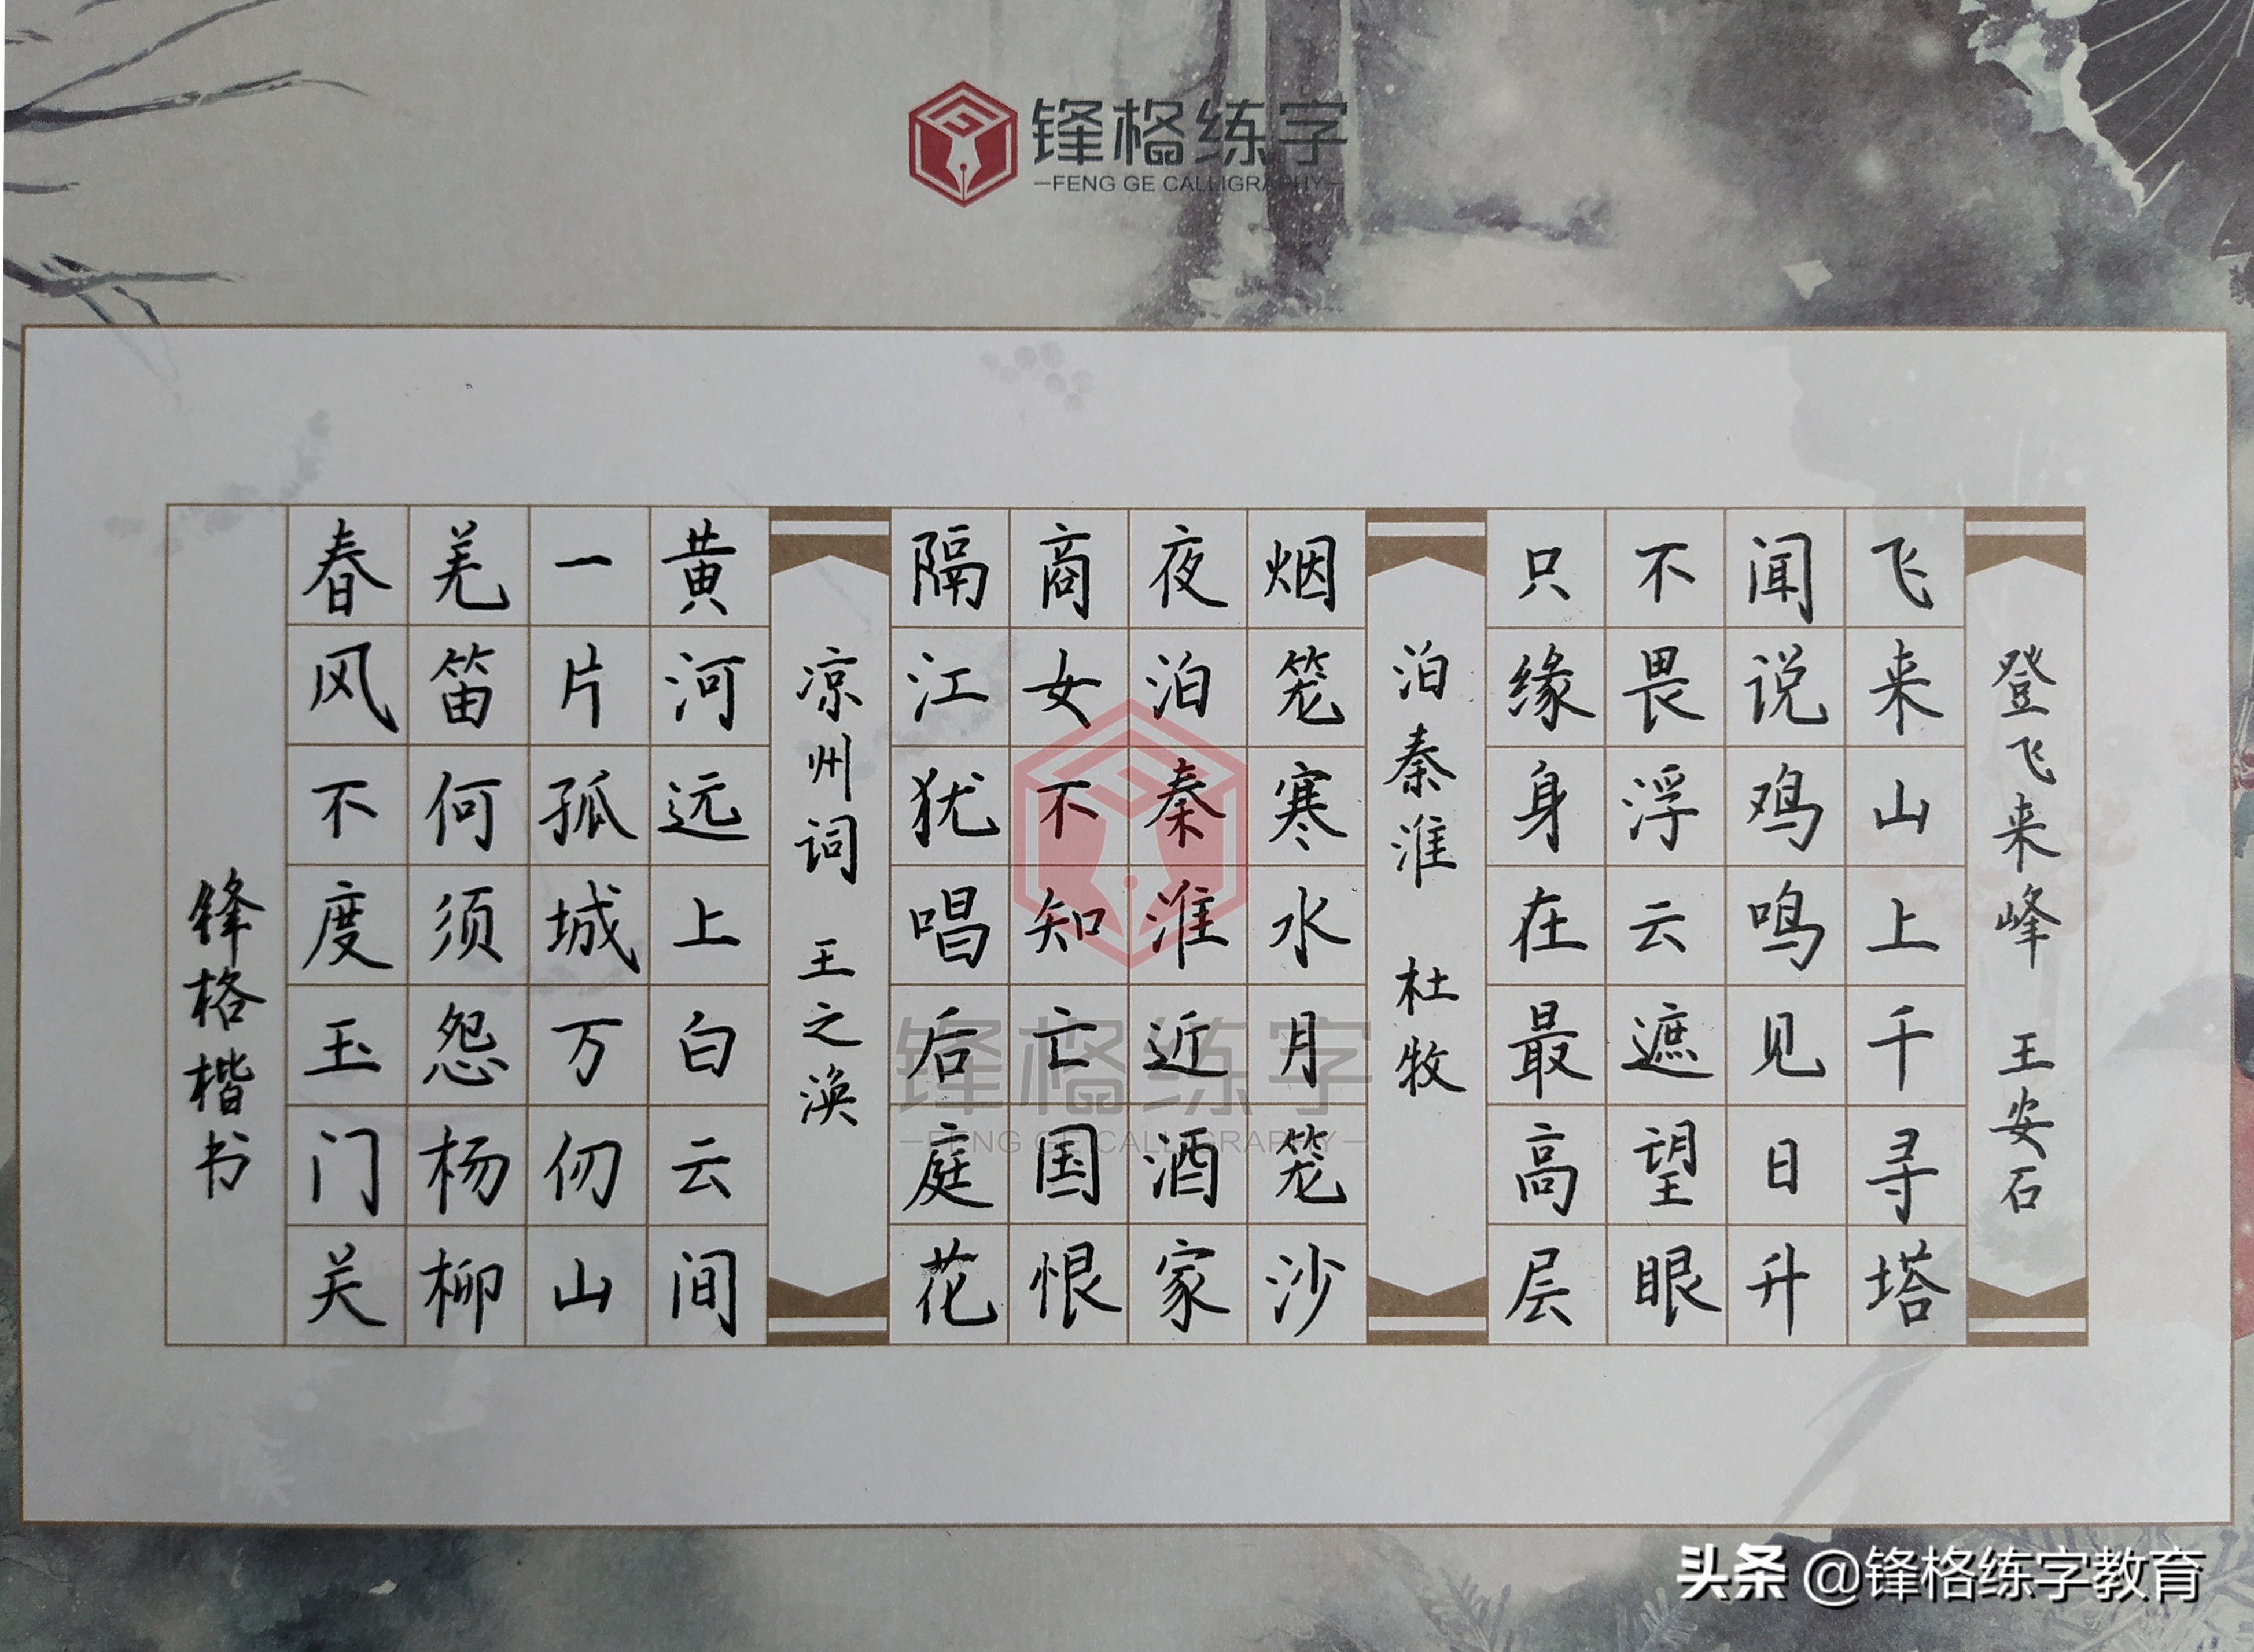 锋格练字
FENG GE CALLIGRAPHY
登飞来峰 王安石
飞来山上千寻塔
闻说鸡鸣见日升
不畏浮云遮望眼
只缘身在最高层
泊秦淮 杜牧
烟笼寒水月笼沙
夜泊秦淮近酒家
商女不知亡国恨
隔江犹唱后庭花
凉州词 王之涣
黄河远上白云间
一片孤城万仞山
羌笛何须怨杨柳
春风不度玉门关
锋格楷书
锋格练字
FENG GE CALLIGRAPHY
头条 @锋格练字教育